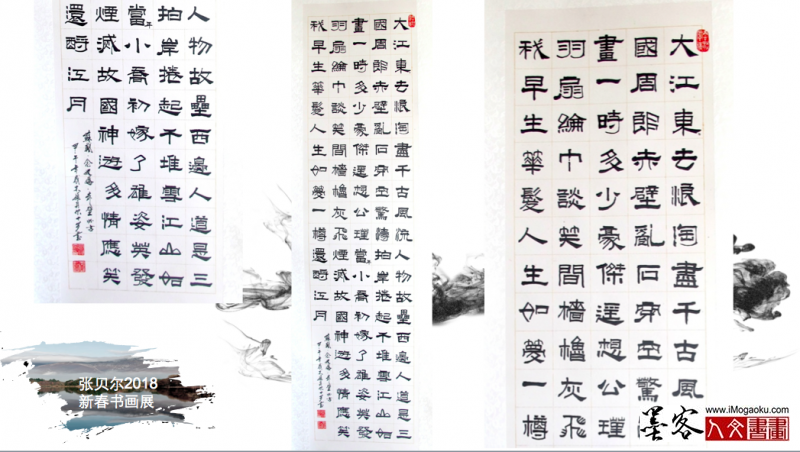 人物故壘西邊人道是三
拍岸捲起千堆雪江山如
當年小喬初嫁了雄姿英發
煙滅故國神遊多情應笑
還酹江月
蘇軾 念奴嬌 赤壁懷古
大江東去浪淘盡千古風流人物故壘西邊人道是三
國周郎赤壁亂石穿空驚濤拍岸捲起千堆雪江山如
畫一時多少豪傑遙想公瑾當年小喬初嫁了雄姿英發
羽扇綸巾談笑間檣櫓灰飛煙滅故國神遊多情應笑
我早生華髮人生如夢一樽還酹江月
蘇軾 念奴嬌 赤壁懷古
大江東去浪淘盡千古風
國周郎赤壁亂石穿空驚
畫一時多少豪傑遙想公瑾
羽扇綸巾談笑間檣櫓灰飛
我早生華髮人生如夢一樽
张贝尔2018
新春书画展
墨客
www.iMogaoku.com
人文書畫